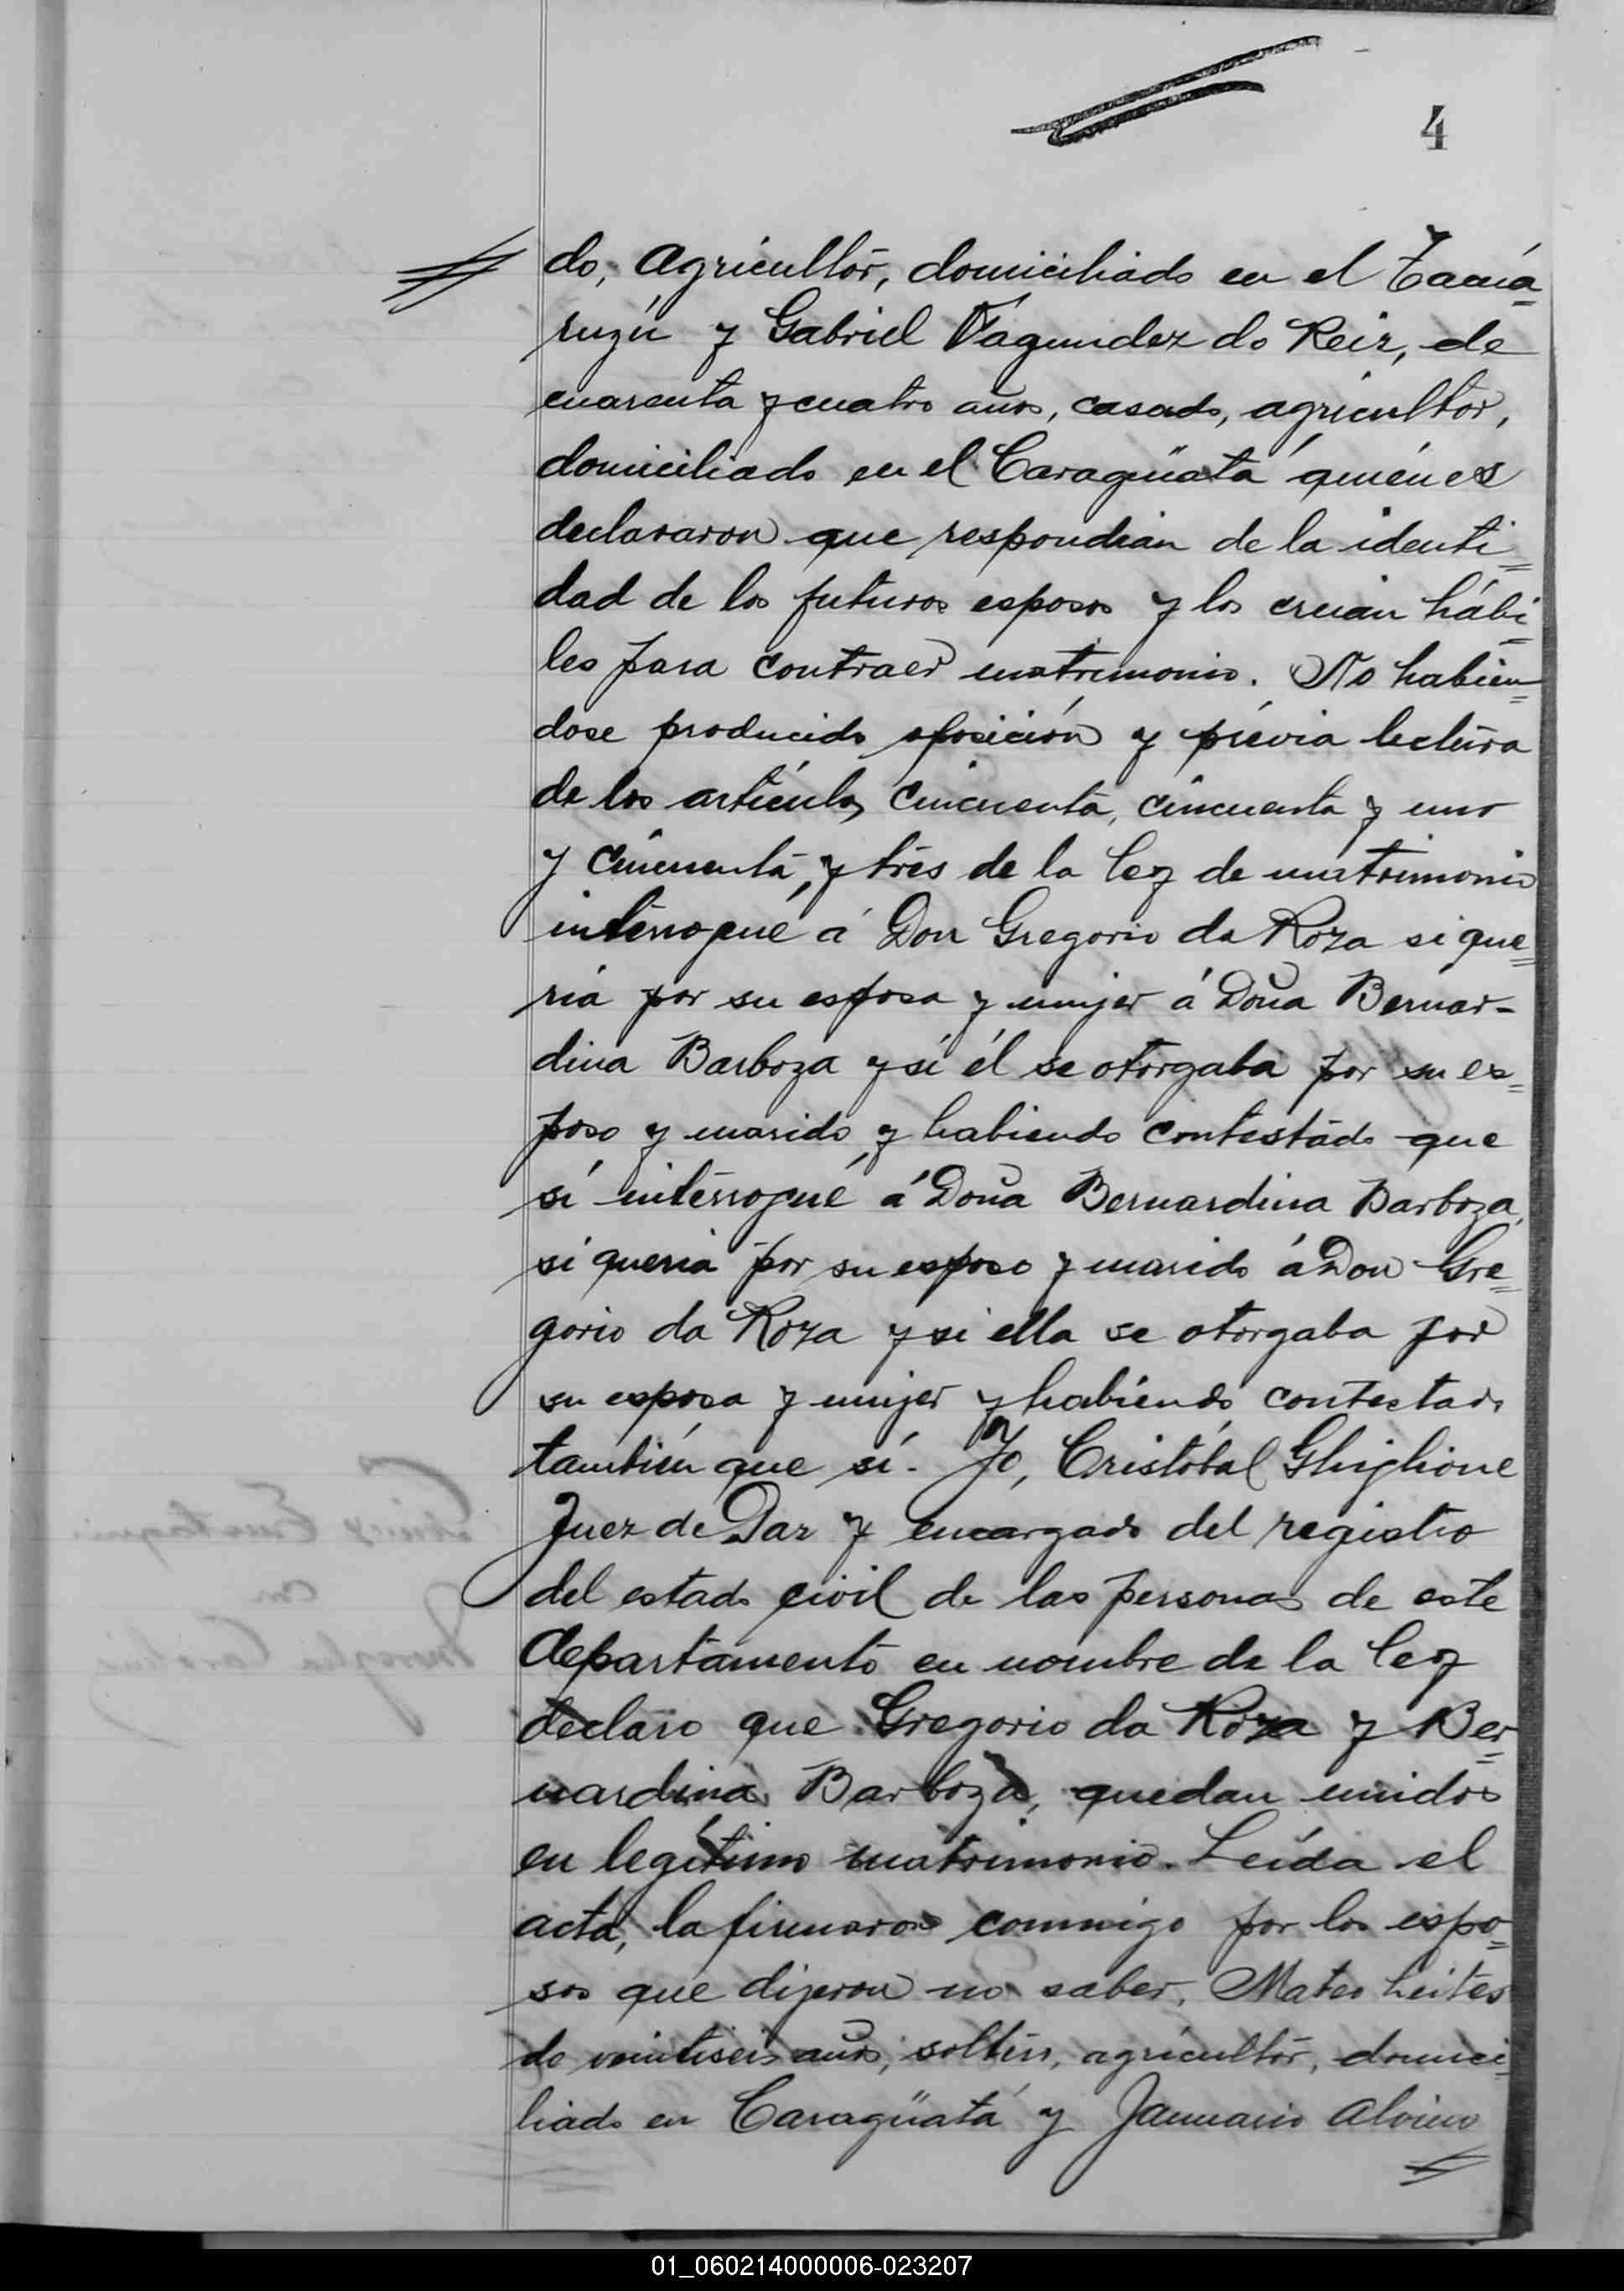 4
do, agricultor, domiciliado en el Tacua=
ruzú y Gabriel Fagundez do Reis, de
cuarenta y cuatro años, casado, agricultor,
domiciliado en el Caragüatá quiénes
declararon que respondian de la identi=
dad de los futuros esposos y los creian hábi=
les para contraer matrimonio. No habien=
dose producido oposición y prévia lectura
de los artículos cincuenta, cincuenta y uno
y cincuenta, y tres de la ley de matrimonio
interrogué á Don Gregorio da Roza si que=
ria por su esposa y mujer á Doña Bernar-
dina Barboza y si él se otorgaba por su es=
poso y marido, y habiendo contestado que
sí interrogué á Doña Bernardina Barboza,
si queria por su esposo y marido á Don Gre=
gorio da Roza y si ella se otorgaba por
su esposa y mujer y habiendo contestado
también que sí. Yo, Cristóbal Ghiglione
Juez de Paz y encargado del registro
del estado civil de las personas de este
departamento en nombre de la ley
declaro que Gregorio da Roza y Ber=
nardina Barboza, quedan unidos
en legítimo matrimonio. Leída el
acta, la firmaron conmigo por los espo=
sos que dijeron no saber, Mateo Leites
de veintiseis años, soltero, agricultor, domici=
liado en Caragüatá y Januario Alvino
01_060214000006-023207